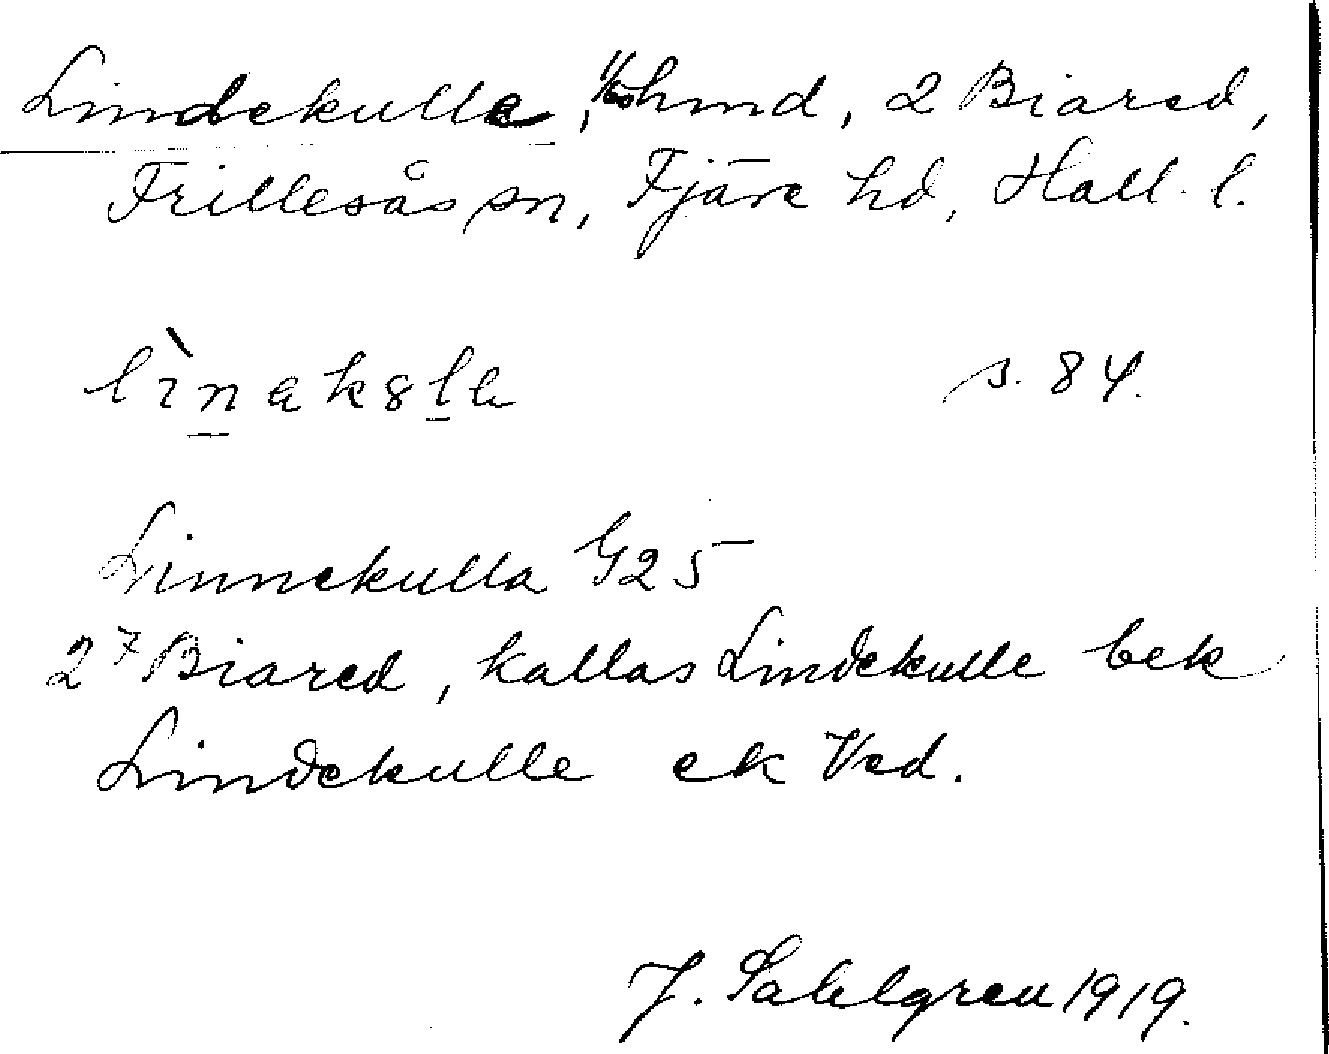 Lindekulle, hmd, 2 Biared,
Frillesås sn, Fjäre hd, Hall. l.
s. 84.
Linnekulla G25
2⁷ Biared, kallas Lindekulle bek
Lindekulle ek Ved.
J. Sahlgren 1919.